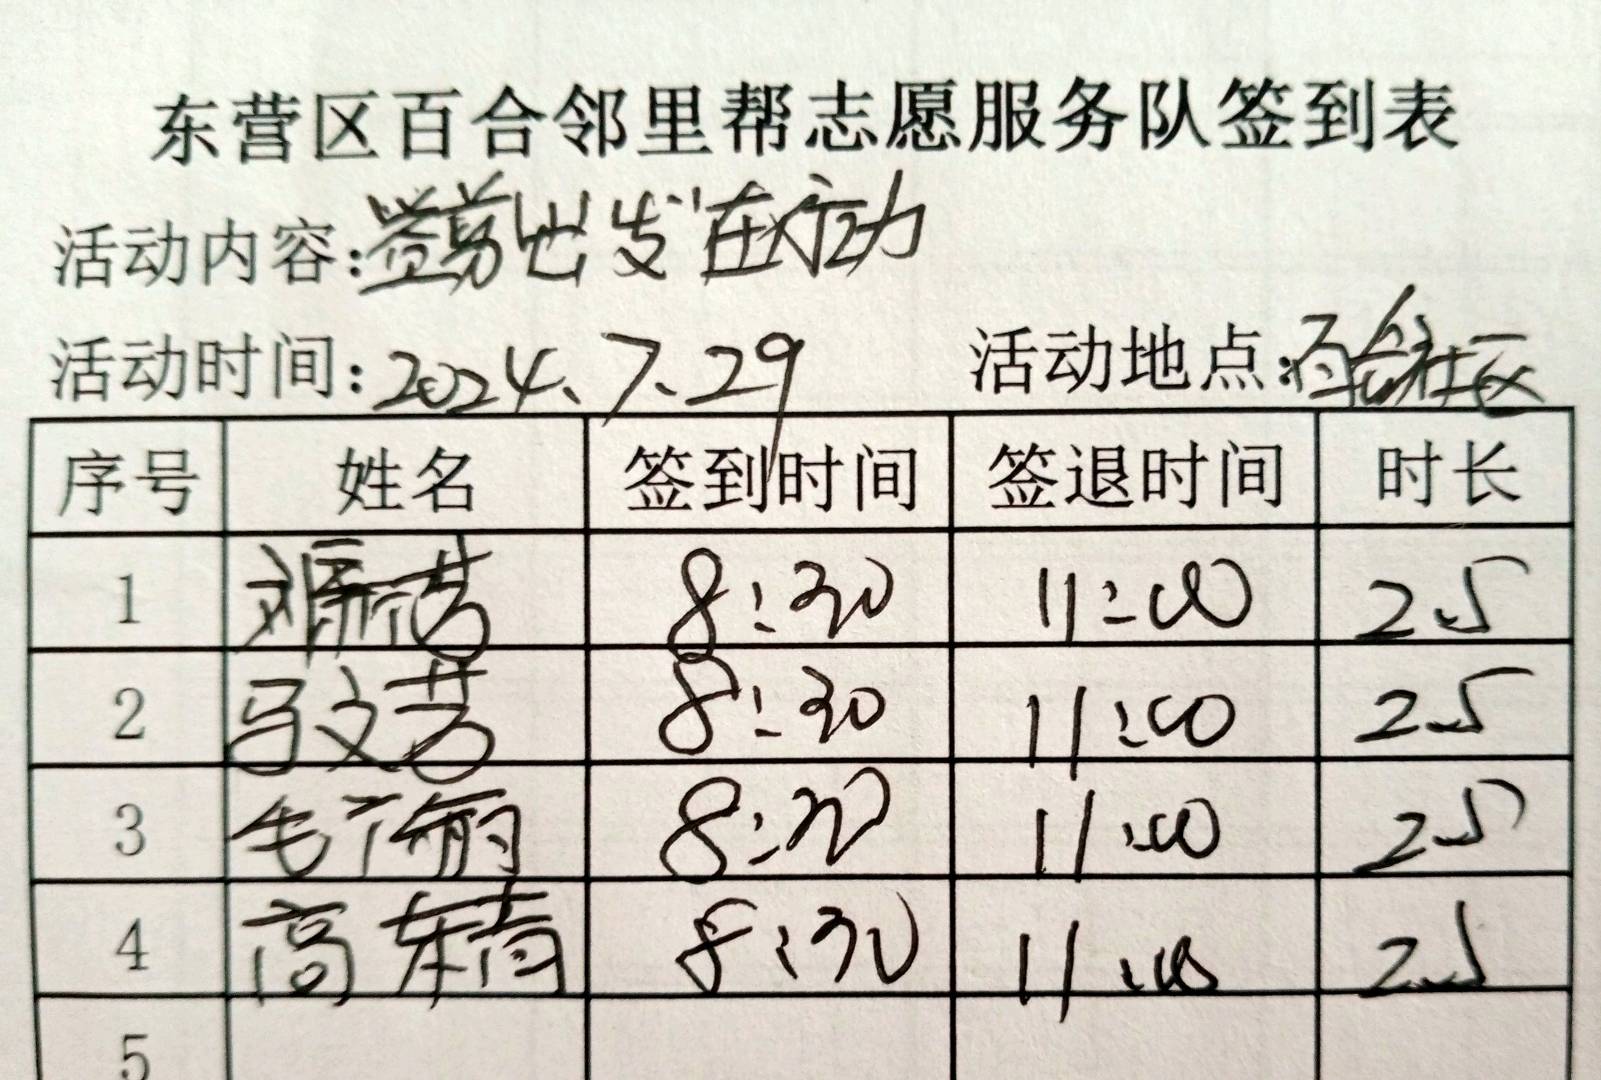 东营区百合邻里帮志愿服务队签到表
活动内容:剪出发在行动
活动时间:2024、7、29 活动地点:百合社区
序号 姓名 签到时间 签退时间 时长
1 8:30 11:00 2.5
2 马文芳 8:30 11:00 2.5
3 8:30 11:00 2.5
4 高东青 8:30 11:00 2.5
5